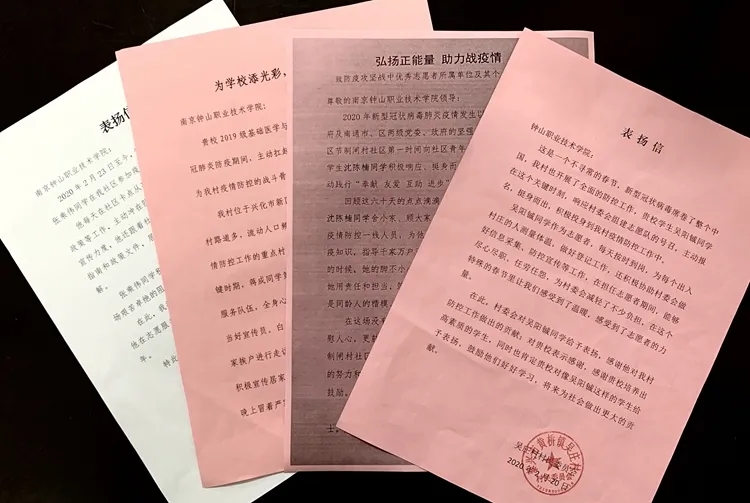 表扬信
南京钟山职业技术学院:
2020年2月23日至今,
张乘伟同学在我社区参加疫
他每天在社区卡点从
政策等工作,主动冲在防
宣传力度,他还跟着社
指南和政策文件,
解。
张乘伟同学
场艰苦卓绝的阻
在此,我
他在志愿服
年。
特此
为学校添光彩,
南京钟山职业技术学院:
贵校2019级基础医学与
冠肺炎防疫期间,主动扛起
为我村疫情防控的战斗
我村位于兴化市新
村路道多、流动人口
情防控工作的重点村
键时期,蒋成同学
服务队伍,全身心
当好宣传员,白
家挨户进行走访
积极宣传居家
晚上冒着严
弘扬正能量 助力战疫情
致防疫攻坚战中优秀志愿者所属单位及其个
尊敬的南京钟山职业技术学院领导:
2020年新型冠状病毒肺炎疫情发生以
府及南通市、区两级党委、政府的坚强
区节制闸村社区第一时间向社区青年
学生沈陈楠同学积极响应,挺身而
动践行“奉献 友爱 互助 进步”
回顾这六十天的点点滴滴
沈陈楠同学舍小家、顾大家
疫情防控一线人员,为他
疫知识,指导千家万户
的时候,她的脚不小
她用责任和担当,
是同龄人的楷模
在这场没
慰人心,更
制闸村社区
的努力和
鼓励。
士。
表扬信
钟山职业技术学院:
这是一个不寻常的春节,新型冠状病毒席卷了整个中
国,我村也开展了全面的防控工作,贵校学生吴阳铖同学
在这个关键时刻,响应村委会组建志愿队的号召,主动报
名,挺身而出,积极投身到我村疫情防控工作中。
吴阳铖同学作为志愿者,每天按时到岗,为每个出入
村庄的人测量体温,做好登记工作,还积极协助村委会做
好信息采集、防控宣传等工作,在担任志愿者期间,能够
尽心尽职、任劳任怨,为村委会减轻了不少负担,在这个
特殊的春节里让我们感受到了温暖,感受到了志愿者的力
量。
在此,村委会对吴阳铖同学给予表扬,感谢他对我村
防控工作做出的贡献,对贵校表示感谢,感谢贵校培养出
高素质的学生,同时也肯定贵校对像吴阳铖这样的学生给
予表扬,鼓励他们好好学习,将来为社会做出更大的贡
献。
吴庄村村民委员会
2020年2月20日